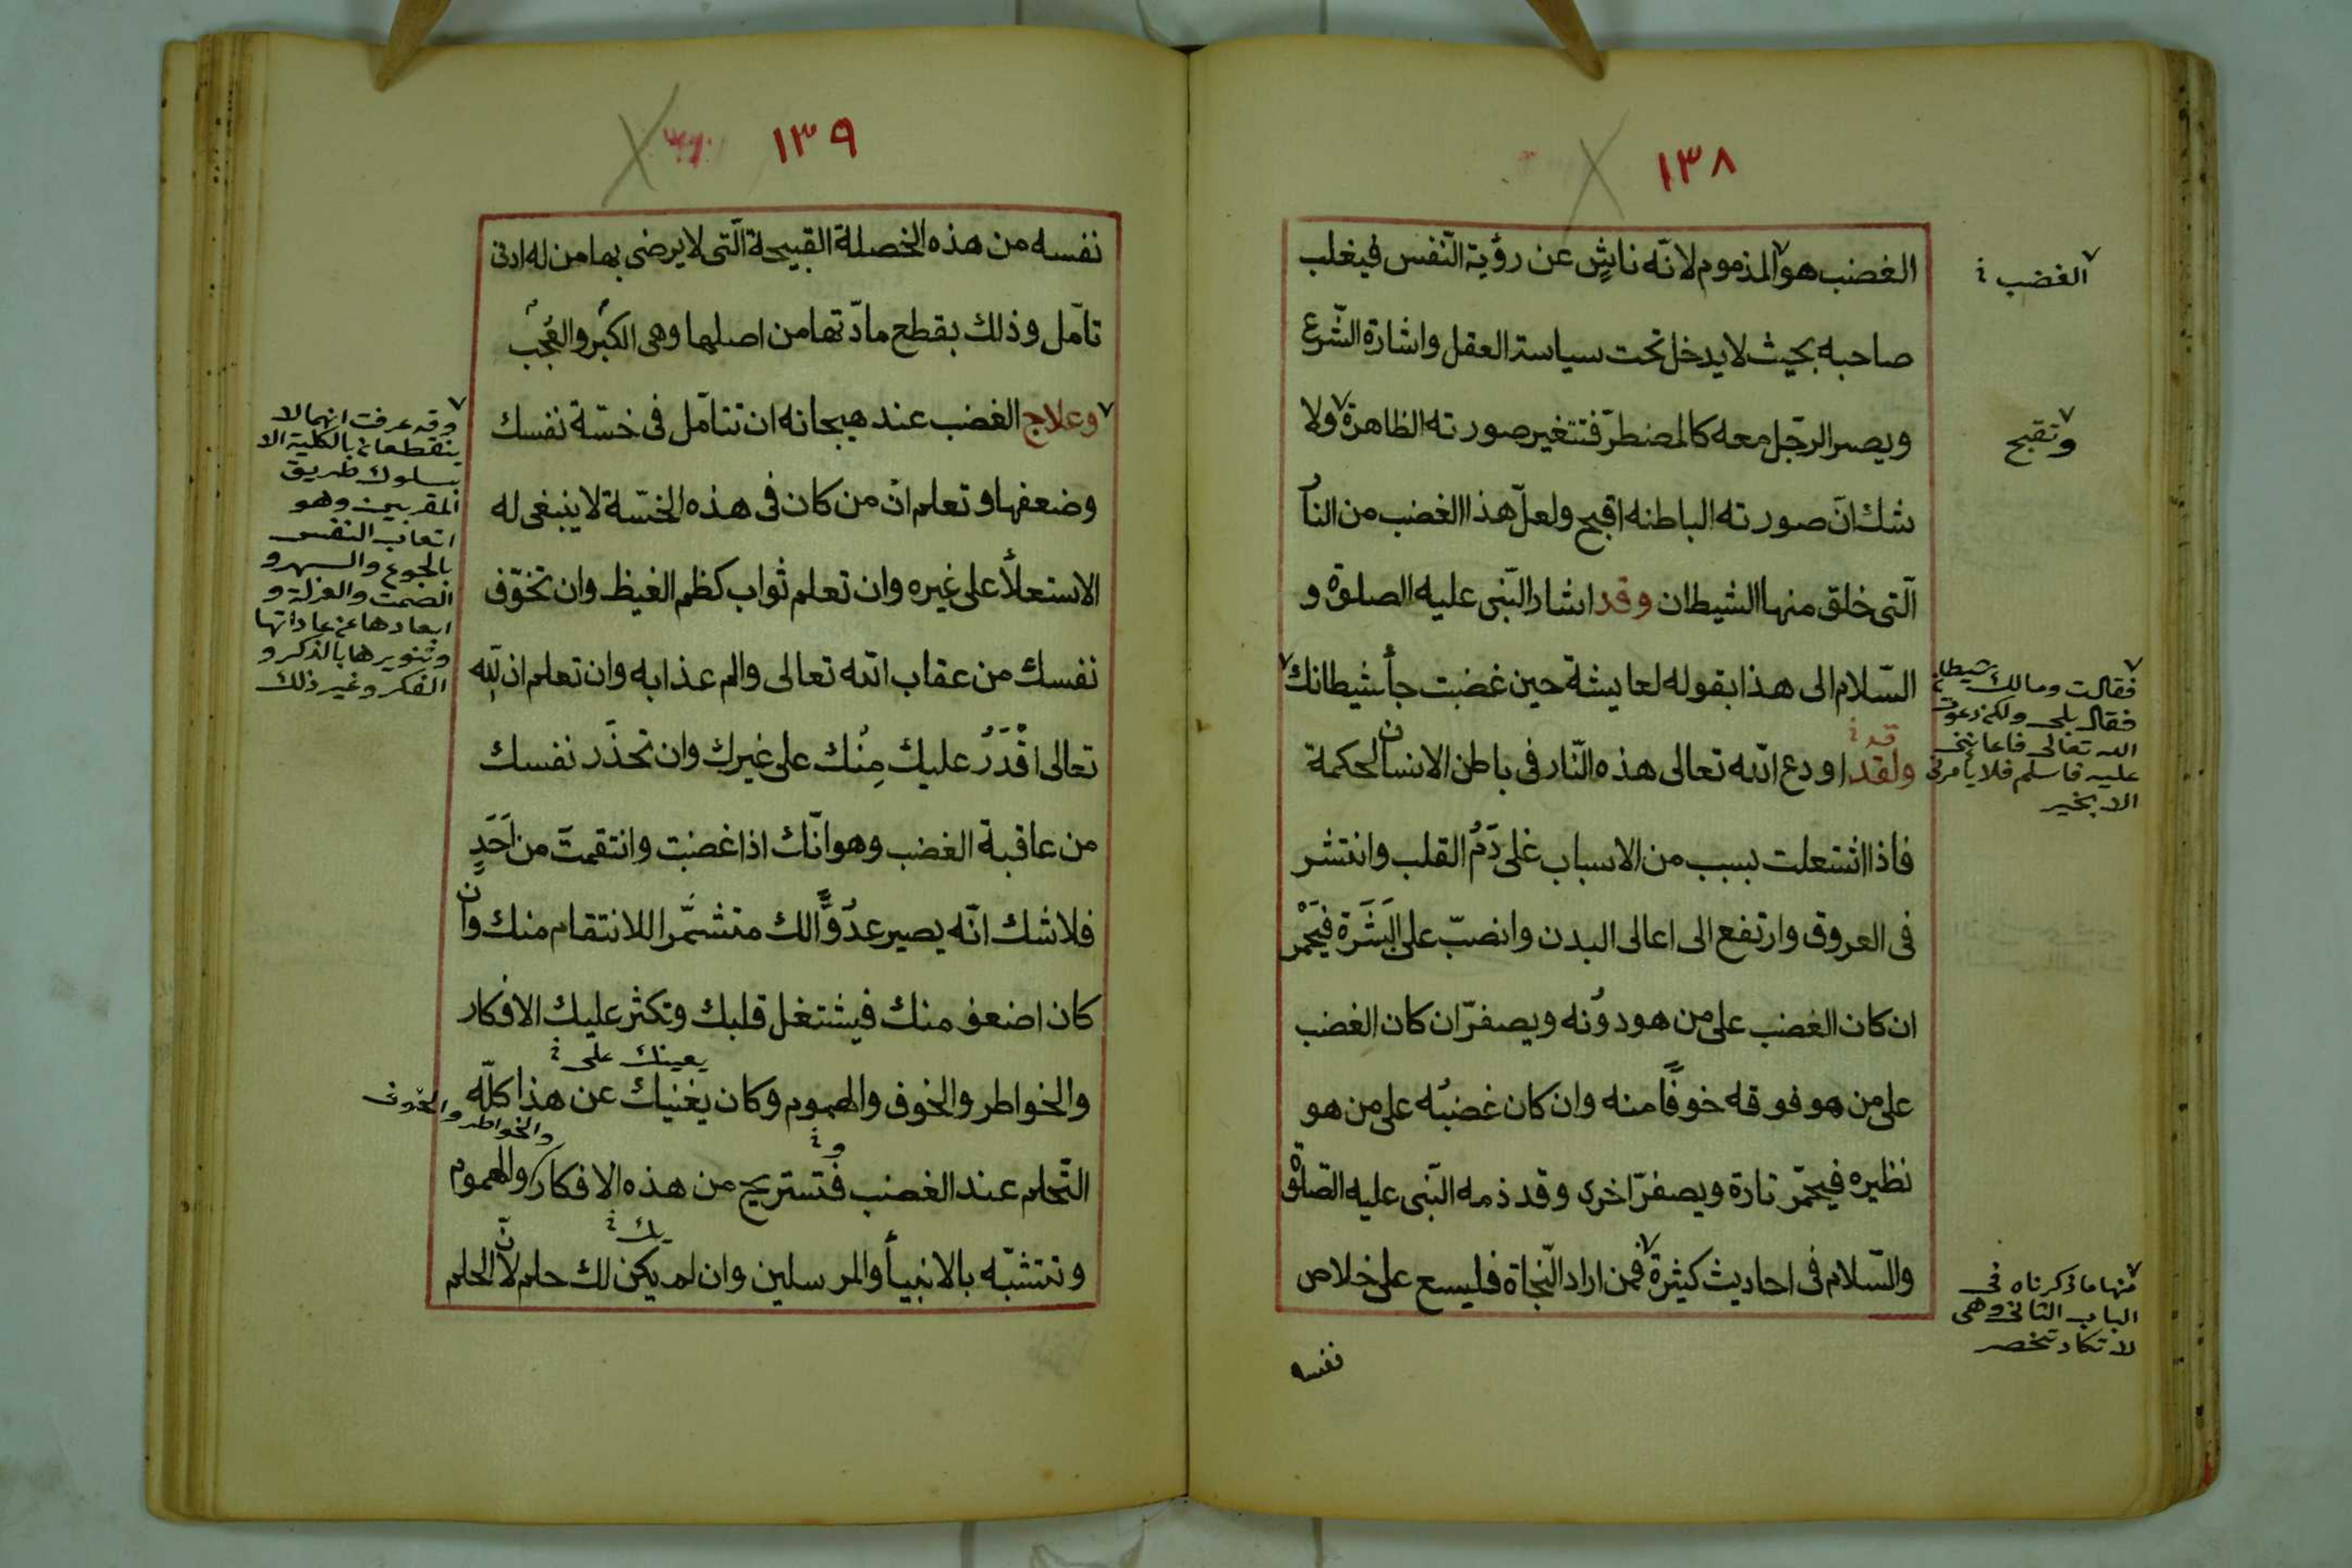 ١٣٨
الغضب هو المذموم لانّه ناشٍ عن رؤية النّفس فيغلب
صاحبه بحيث لا يدخل تحت سياسة العقل واشارة الشّرع
ويصر الرّجل معه كالمضطرّ فتتغير صورته الظاهرة ولا
شك انّ صورته الباطنه اقبح ولعلّ هذا الغضب من النار
الّتى خلق منها الشيطان وقد اشار النّبى عليه الصلوة و
السّلام الى هذا بقوله لعايشة حين غضبت جأ شيطانك
ولقد اودع الله تعالى هذه النّار فى باطن الانسان لحكمة
فاذا اشتعلت بسبب من الاسباب غلى دَمُ القلب وانتشر
فى العروق وارتفع الى اعالى البدن وانصبّ على البَشَرَة فيَحْمر
ان كان الغضب على من هو دُونه ويصفرّ ان كان الغضب
على من هو فوقه خوفًا منه وان كان غضبُه على من هو
نظيره فيحمّر تارة ويصفرّ اخرى وقد ذمه النّبى عليه الصّلوة
والسّلام فى احاديث كثيرة فمن اراد النّجاة فليسع على خلاص
نفسه
الغضب
وتقبح
فقالت ومالك شيطان
فقال بلى ولكن دعوت
الله تعالى فاعاننى
عليه فاسلم فلا يأمرنى
الا بخير
قد
منها ما ذكرناه فى
الباب الثانى وهى
لا تكاد تنحصر
١٣٩
نفسه من هذه الخصلة القبيحة الّتى لا يرضى بها من له ادنى
تامّل وذلك بقطع مادّتها من اصلها وهى الكبْر والعُجْب
وعلاج الغضب عند هيجانه ان تتامّل فى خسّة نفسك
وضعفها وتعلم انّ من كان فى هذه الخسّة لا ينبغى له
الاستعلأ على غيره وان تعلم ثواب كظم الغيظ وان تخوّف
نفسك من عقاب الله تعالى والم عذابه وان تعلم ان لله
تعالى اقْدَرُ عليك مِنْك على غيرك وان تحذّر نفسك
من عاقبة الغضب وهو انّك اذا غضبت وانتقمتَ من اَحَدٍ
فلا شك انّه يصير عدُوًّا لك متشمّرا للانتقام منك وان
كان اضعف منك فيشتغل قلبك وتكثر عليك الافكار
والخواطر والخوف والهموم وكان يغنيك عن هذا كلّه
يعينك على
التّحلم عند الغضب فتستريح من هذه الافكار والهموم
والخواطر والخوف
وتتشبّه بالانبيأ والمرسلين وان لم يكن لك حلم لانّ الحلم
يك
وقد عرفت انهما لا
ينقطعان بالكلية الا
بسلوك طريق
المقربين وهو
اتعاب النفس
بالجوع والسهر و
الصمت والعزلة و
ابعادها عن عاداتها
وتنويرها بالذكر و
الفكر وغير ذلك